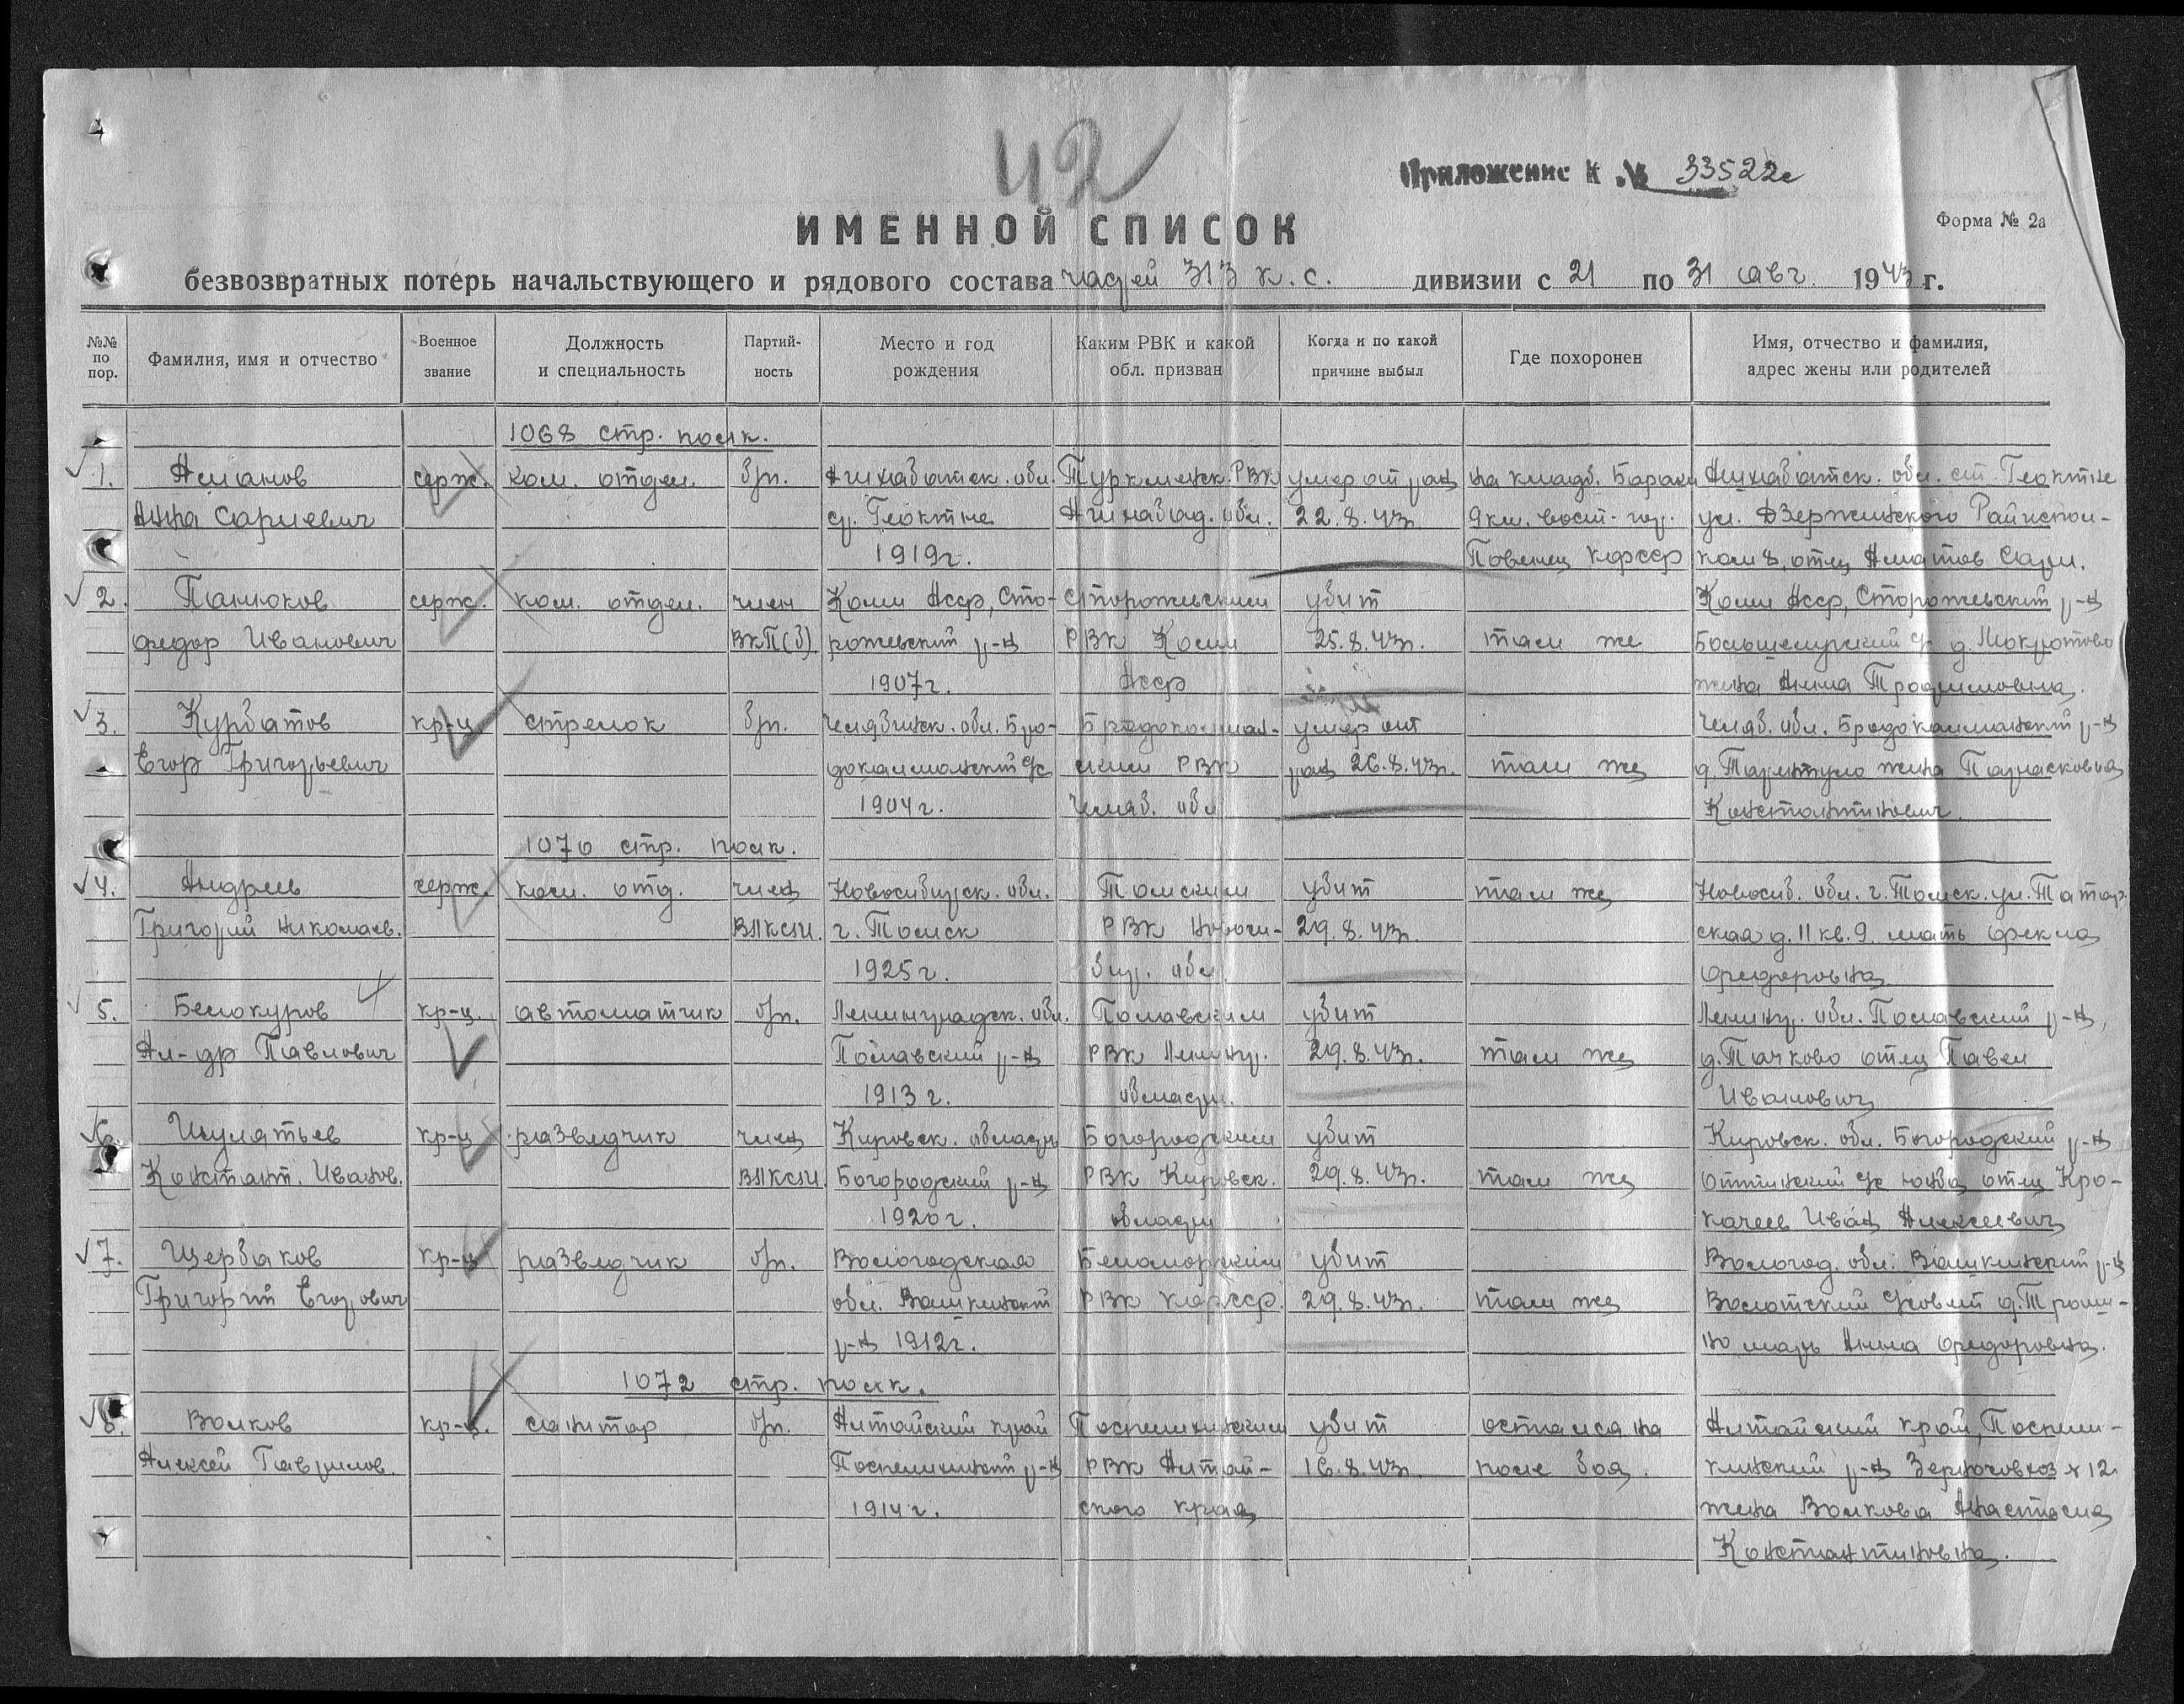 42
Приложение к № 33522с
ИМЕННОЙ СПИСОК
Форма № 2а
безвозвратных потерь начальствующего и рядового состава частей 313 к.с. дивизии с 21 по 31 авг. 1943 г.
№№ по пор. Фамилия, имя и отчество Военное звание Должность и специальность Партийность Место и год рождения Каким РВК и какой обл. призван Когда и по какой причине выбыл Где похоронен Имя, отчество и фамилия, адрес жены или родителей
1068 стр. полк.
1. серж. ком. отдел. б/п. Ашхабатск. обл. Туркменск. РВК умер от ран на кладб. Ашхабатск. обл. ст. Геоктпе
Сариевич Геоктпе Ашхабад. обл. 22.8.43 9 км. вост. ул. Дзержинского Райиспол-
1919г. Повенец кфсср ком 8, отец
2. Панюков серж. ком. отдел. член Коми Асср, Сто- Сторожевским убит Коми Асср, Сторожевский р-н
Федор Иванович ВКП(б) рожевский р-н РВК Коми 25.8.43г. там же д.
1907г. Асср жена Анна Трофимовна.
3. Курбатов кр-ц стрелок б/п. Челябинск. обл. Бро- умер от Челяб. обл. Бродокалмакский р-н
Егор Григорьевич докалмакский с/с ским РВК ран 26.8.43г. там же д. жена
1904г. Челяб. обл
1070 стр. полк.
4. Андреев серж. ком. отд. член Новосибирск. обл. Томским убит там же Новосиб. обл. г. Томск. ул. Татар-
Григорий Николаев. ВЛКСМ. г. Томск РВК Новоси- 29.8.43г. ская д. 11 кв. 9. мать Фекла
1925г. бир. обл Федоровна
5. Белокуров кр-ц. автоматчик б/п. Ленинградск. обл. Полавским убит Ленингр. обл. Полавский р-н,
Ал-др Павлович Полавский р-н РВК Ленингр. 29.8.43г. там же д. Тачково отец Павел
1913г. области. Иванович
6. Шулятьев кр-ц разведчик член Кировск. области Богородским убит Кировск. обл. Богородский р-н
Констант. Иванов. ВЛКСМ. Богородский р-н РВК Кировск. 29.8.43г. там же с/с отец
1920г. области Иван Алексеевич
7. Щербаков кр-ц разведчик б/п. Вологодская Беломорским убит Вологод. обл. Вашкинский р-н
Григорий Егорович обл. Вашкинский РВК кфсср. 29.8.43г. там же д.
р-н 1912г. мать Анна Федоровна.
1072 стр. полк.
8. Волков кр-ц. санитар б/п. Алтайский край Поспелихинским убит остался на Алтайский край,
Алексей Гаврилов. Поспелихинский р-н РВК Алтай- 16.8.43г. поле боя. р-н Зерносовхоз №12
1914г. ского края жена Волкова Анастасия
Константиновна.